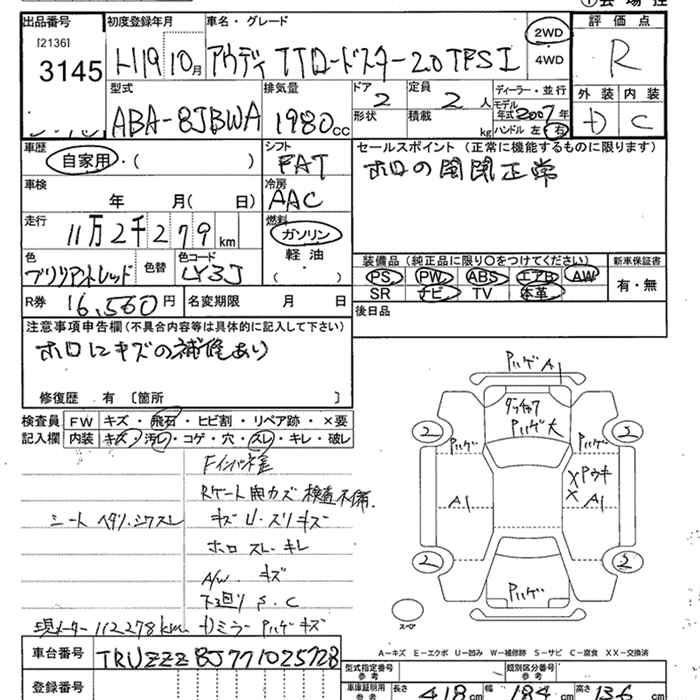 出品番号 初度登録年月 車名・グレード 評価点
[2136]
3145 H19 10月 アウディ TTロードスター 2.0 TFSI 2WD 4WD R
型式 排気量 ドア 2 定員 2人 ディーラー・並行 外装 内装
ABA-8JBWA 1980cc 形状 積載 kg モデル年式 2007年 ハンドル 左 右 D C
車歴 シフト セールスポイント (正常に機能するものに限ります)
自家用・( ) FAT ホロの開閉正常
車検 冷房
年 月( 日) AAC
走行 燃料
11万2千279km ガソリン
色 色替 色コード 軽油 装備品 (純正品に限り○をつけてください) 新車保証書
ブリリアントレッド LY3J ・( ) PS PW ABS エアB AW 有・無
R券 16,560円 名変期限 月 日 SR ナビ TV 本革
後日品
注意事項申告欄(不具合内容等は具体的に記入して下さい)
ホロにキズの補修あり
修復歴 有 〔箇所 〕
検査員 FW キズ・飛石・ヒビ割・リペア跡・×要
記入欄 内装 キズ・汚レ・コゲ・穴・スレ・キレ・破レ
Fインパネ歪
検査不備.
シート ヘタリ.シワスレ キズ U.スリキズ
ホロ スレ.キレ
A/W. キズ
下廻り S.C
現メーター 112278km
車台番号 TRUZZZ8J771025728
登録番号
Pハゲ A1
Pハゲ大
2 Pハゲ Pハゲ 2
A1 X Pウキ
X A1
2 Pハゲ 2
スペア
A-キズ E-エクボ U-凹み W-補修跡 S-サビ C-腐食 XX-交換済
型式指定番号 参考 類別区分番号 参考
車庫証明用 参考 長さ 418cm 幅 184cm 高さ 135cm